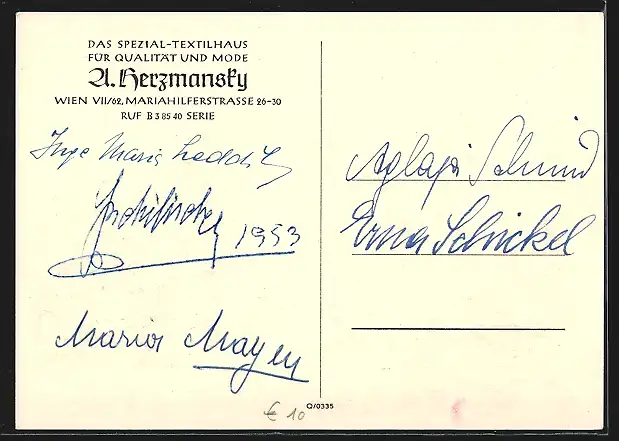 DAS SPEZIAL-TEXTILHAUS
FÜR QUALITÄT UND MODE
A. Herzmansky
WIEN VII/62, MARIAHILFERSTRASSE 26-30
RUF B 3 85 40 SERIE
Inge Maria
1953
Maria Mayer
Aglaja Schmid
Erna Schickel
Q/0335
€ 10